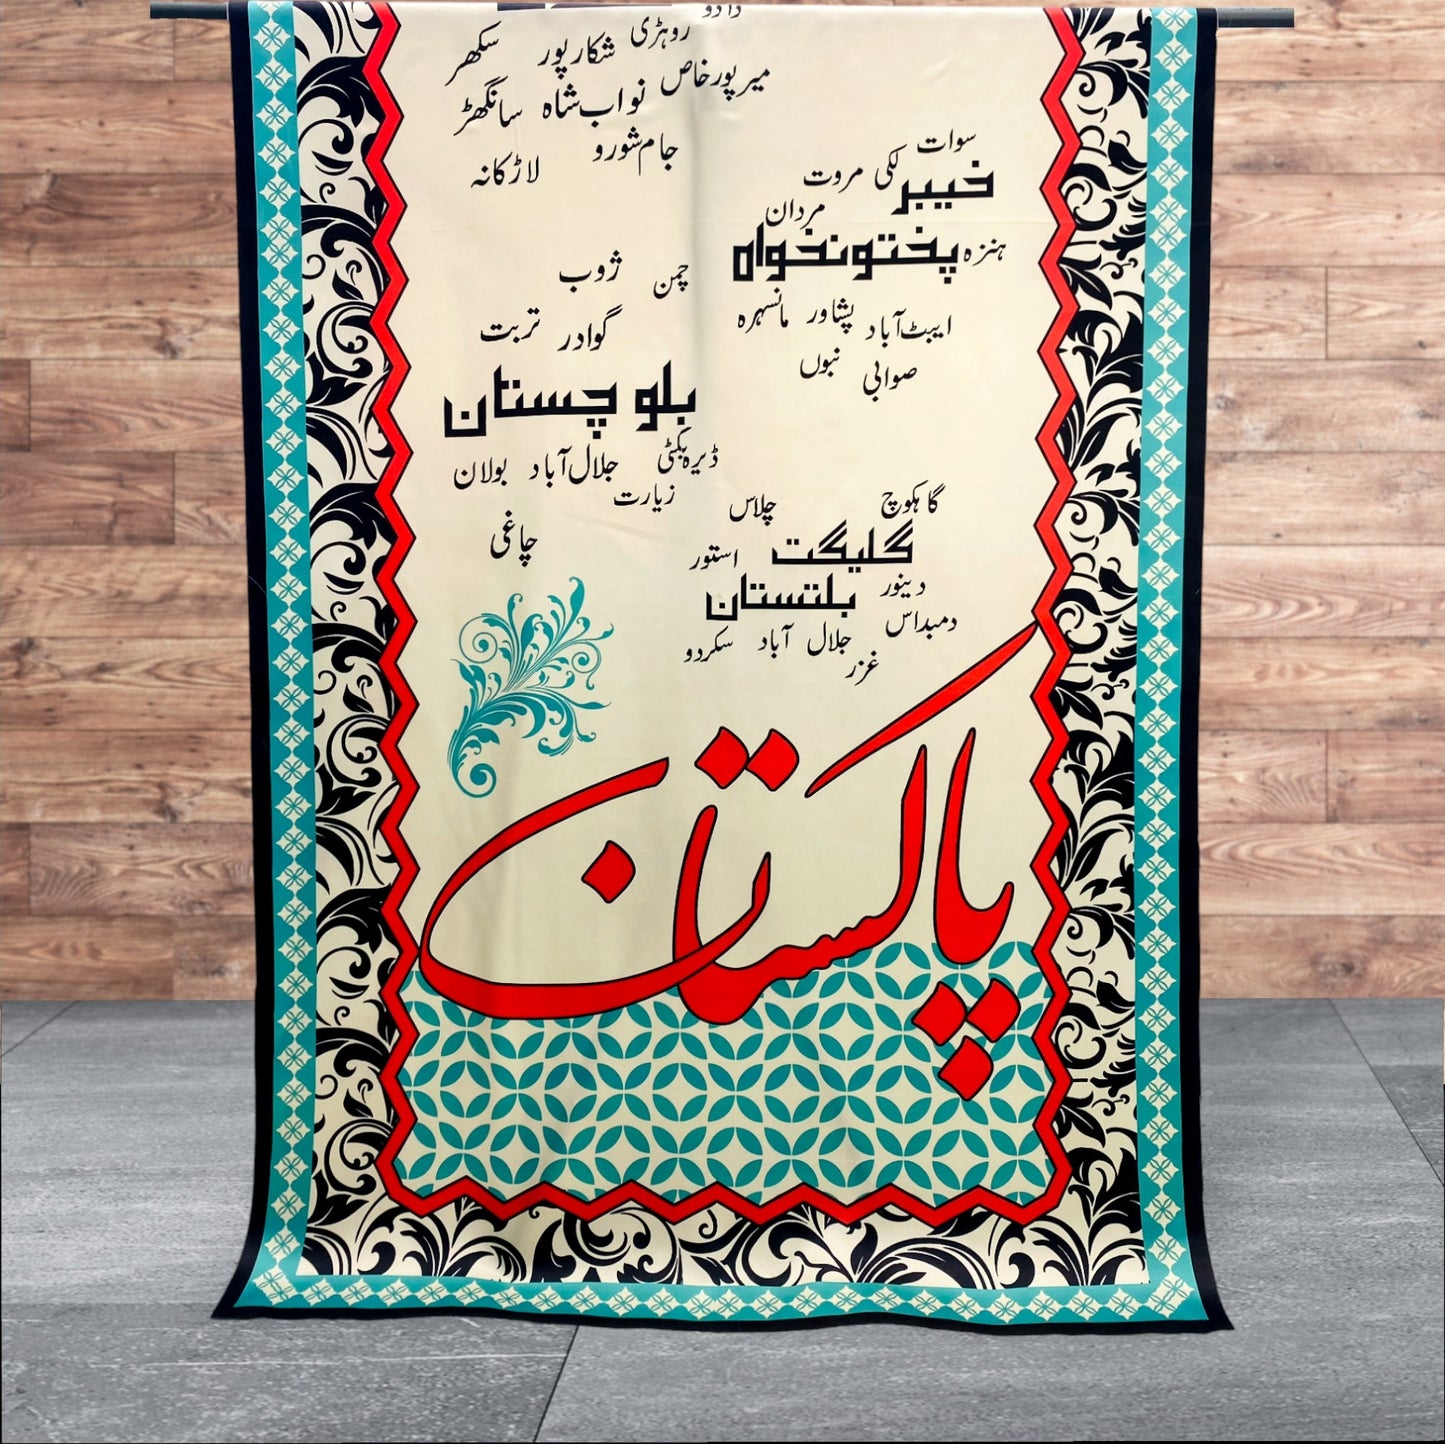 دادو
روہڑی
شکارپور
سکھر
میرپورخاص
نواب‌شاہ
سانگھڑ
جام‌شورو
لاڑکانہ
سوات
خیبر
لکی مروت
مردان
ہنزہ
پختونخواہ
ایبٹ‌آباد
پشاور
مانسہرہ
صوابی
نبوں
چمن
ژوب
گوادر
تربت
بلوچستان
ڈیرہ‌بگٹی
جلال‌آباد
بولان
زیارت
چاغی
گاہکوچ
چلاس
گلیگت
استور
بلتستان
دینور
دمبداس
جلال آباد
سکردو
غزر
پاکستان